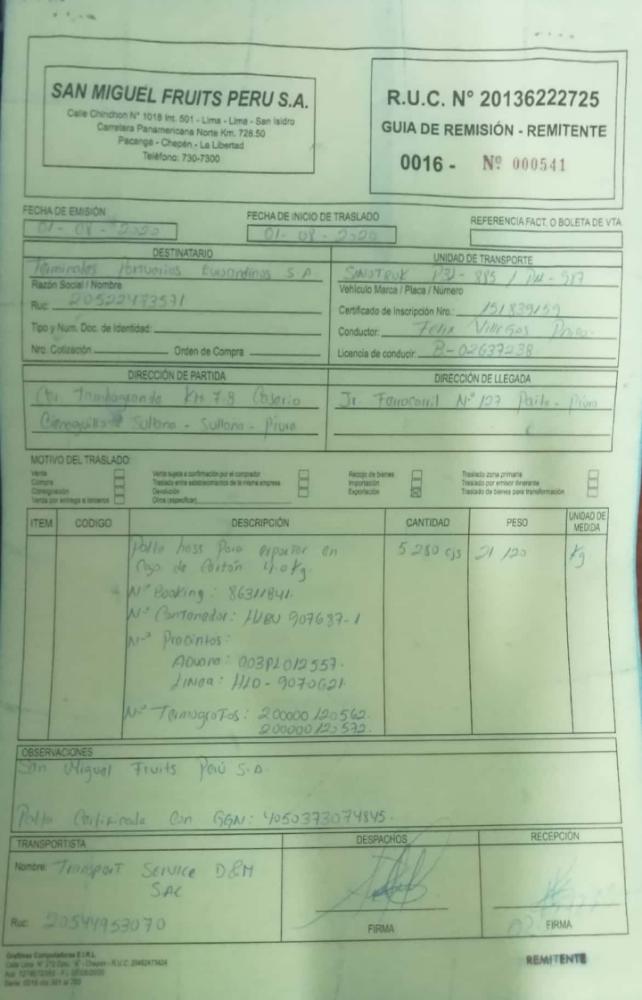 SAN MIGUEL FRUITS PERU S.A.
Calle Chinchon N° 1018 Int. 501 - Lima - Lima - San Isidro
Carretera Panamericana Norte Km. 728.50
Pacanga - Chepén - La Libertad
Teléfono: 730-7300
R.U.C. N° 20136222725
GUIA DE REMISIÓN - REMITENTE
0016 - Nº 000541
FECHA DE EMISIÓN
01 - 08 - 2020
FECHA DE INICIO DE TRASLADO
01 - 08 - 2020
REFERENCIA FACT. O BOLETA DE VTA
DESTINATARIO
Terminales Portuarios Euroandinos S.A.
Razón Social / Nombre
Ruc: 20522473571
Tipo y Num. Doc. de Identidad:
Nro. Cotización Orden de Compra
UNIDAD DE TRANSPORTE
SINOTRUK
Vehículo Marca / Placa / Número
Certificado de Inscripción Nro.: 151839159
Conductor: Felix Villegas
Licencia de conducir: B-02637238
DIRECCIÓN DE PARTIDA
Tambogrande KM 7.8 Caserio
Cieneguillo Sullana - Sullana - Piura
DIRECCIÓN DE LLEGADA
Jr. Ferrocarril N° 127 Paita - Piura
MOTIVO DEL TRASLADO:
Venta
Compra
Consignación
Venta por entrega a terceros
Venta sujeta a confirmación por el comprador
Traslado entre establecimientos de la misma empresa
Devolución
Otros (especificar)
Recojo de bienes
Importación
Exportación
Traslado zona primaria
Traslado por emisor itinerante
Traslado de bienes para transformación
ITEM CODIGO DESCRIPCIÓN CANTIDAD PESO UNIDAD DE MEDIDA
Palta hass Para exportar en 5 280 cjs 21 120 Kg
Caja de Cartón 4.0 Kg.
N° Booking: 86311841.
N° Contenedor: HLBU 907687-1
N° Precintos:
Aduana: 003PL012557.
Linea: HLD - 9070621.
N° Termografos: 200000120562.
200000120572.
OBSERVACIONES
San Miguel Fruits Perú S.A.
Palta Certificada Con GGN: 4050373074845.
TRANSPORTISTA
Nombre: Transport Service D&M
SAC
Ruc: 20544953070
DESPACHOS
FIRMA
RECEPCIÓN
FIRMA
Graficas Computadoras E.I.R.L.
REMITENTE